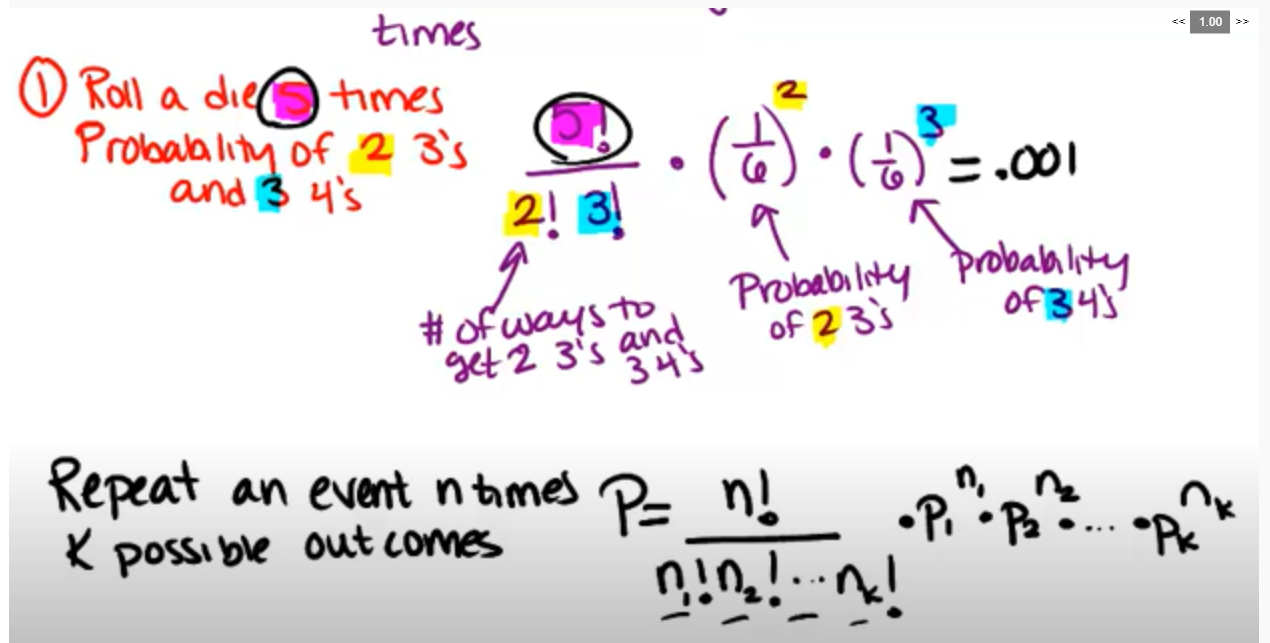 << 1.00 >>
times
① Roll a die 5 times
Probability of 2 3's
and 3 4's
5! / 2! 3! · (1/6)² · (1/6)³ = .001
# of ways to
get 2 3's and
3 4's
Probability
of 2 3's
probability
of 3 4's
Repeat an event n times
K possible outcomes
P = n! / n₁! n₂! ... nₖ! · P₁ⁿ¹ · P₂ⁿ² · ... · Pₖⁿₖ